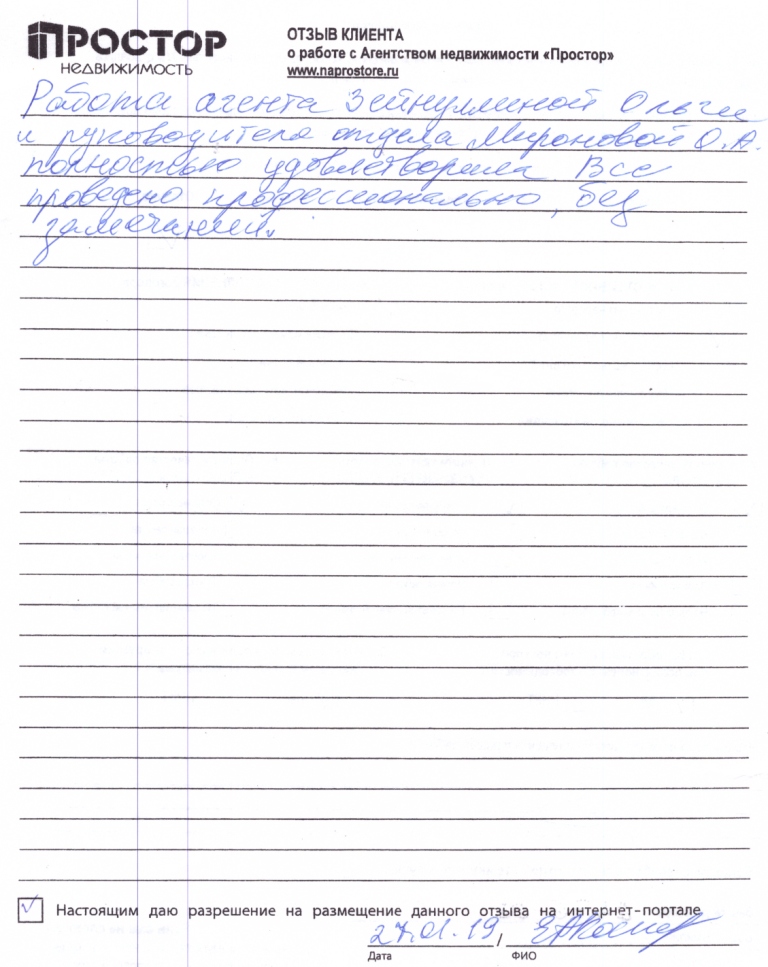 ПРОСТОР
НЕДВИЖИМОСТЬ
ОТЗЫВ КЛИЕНТА
о работе с Агентством недвижимости «Простор»
www.naprostore.ru
Работа агента Зейнуллиной Ольги
и руководителя отдела Мироновой О.А.
полностью удовлетворила Все
проведено профессионально, без
замечаний.
Настоящим даю разрешение на размещение данного отзыва на интернет-портале
27.01.19 /
Дата ФИО